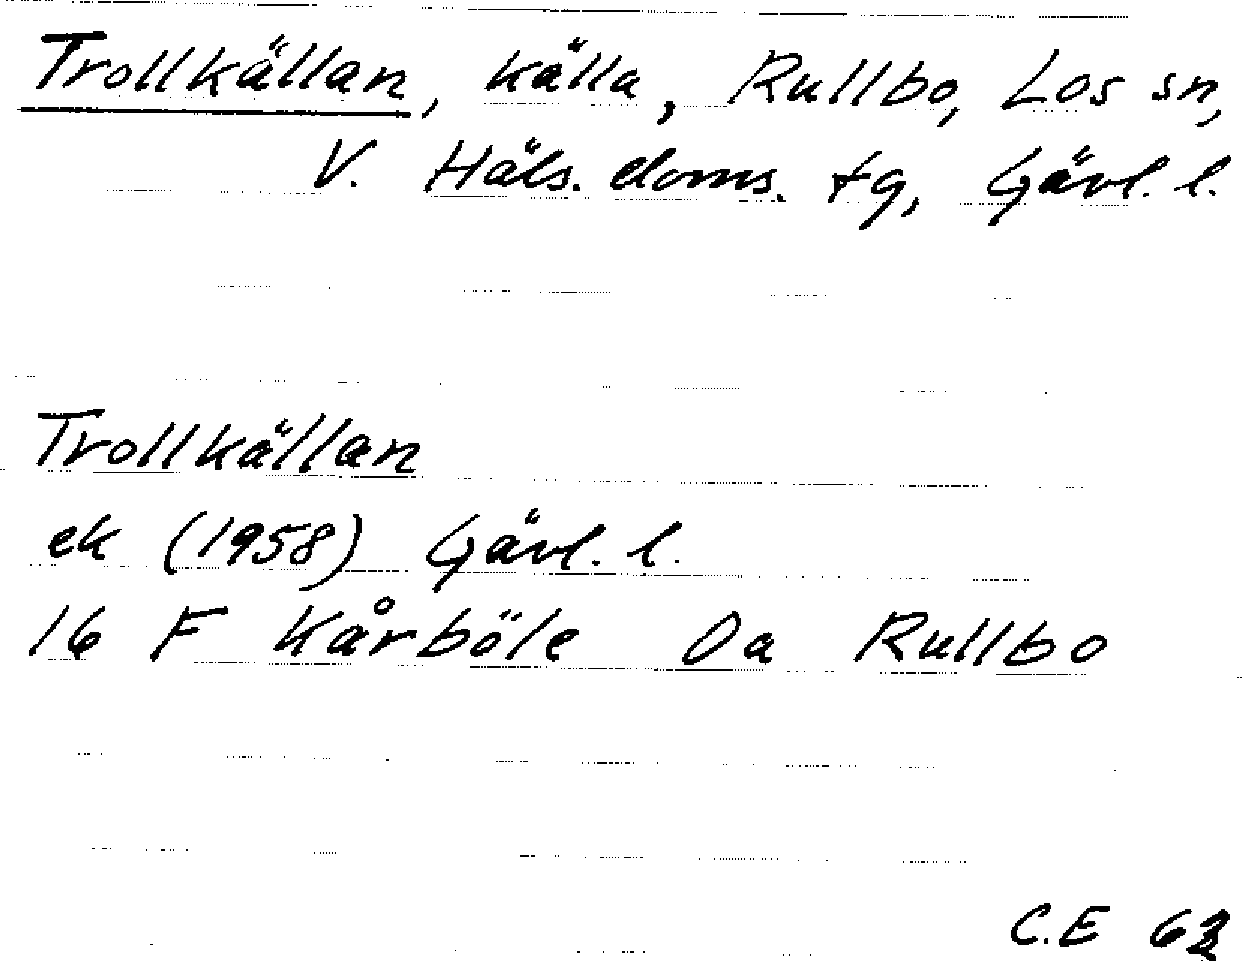 Trollkällan, källa, Rullbo, Los sn,
V. Häls. doms. tg, Gävl. l.
Trollkällan
ek (1958) Gävl. l.
16 F Kårböle Da Rullbo
C.E